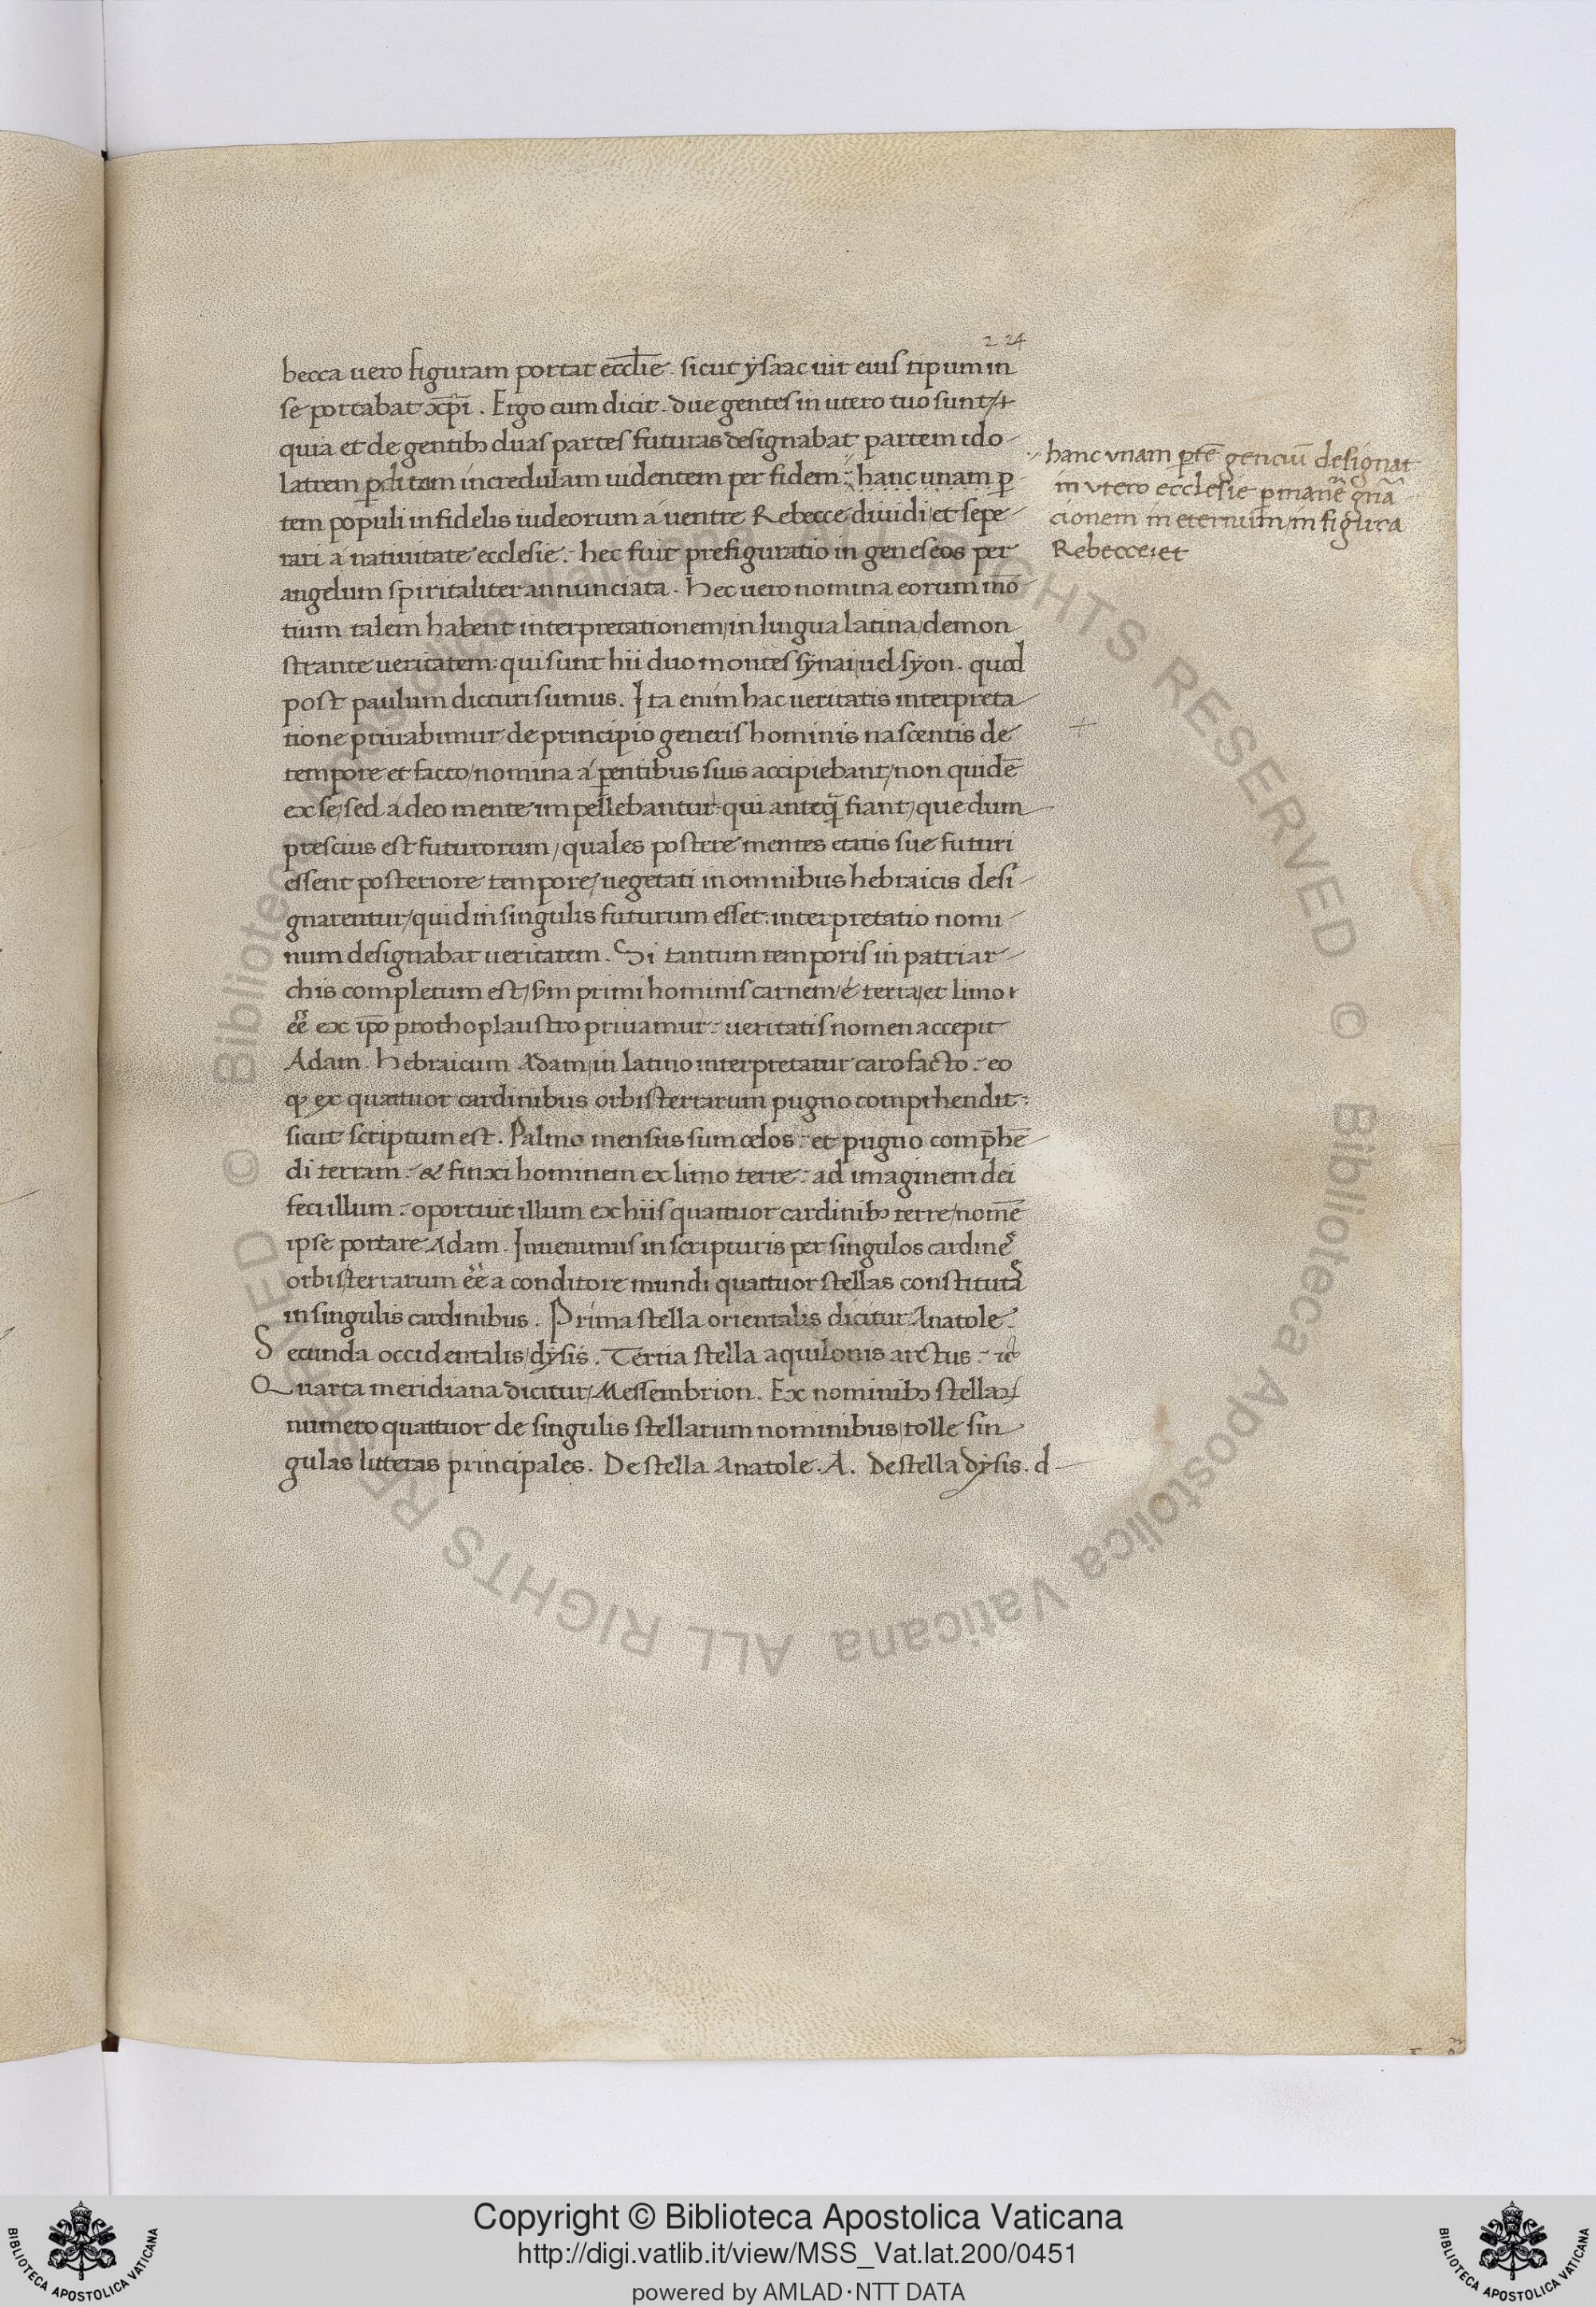 224
becca uero figuram portat eccl̄ie. sicut ẏsaac uir eius tipum in
se portabat xp̄i. Ergo cum dicit. due gentes in utero tuo sunt/
quia et de gentibꝫ duas partes futuras designabat partem ido-
latrem ꝑditam incredulam uidentem per fidem: hanc unam ꝑ
tem populi infidelis iudeorum á uentre Rebecce diuidi/et sepe-
rari á natiuitate ecclesie. hec fuit prefiguratio in geneseos per
angelum spiritaliter annunciata. Hec uero nomina eorum mō
tium talem habent interpretationem/in lingua latina/demon
strante ueritatem: qui sunt hii duo montes sẏnai/uel sẏon. quod
post paulum dicturi sumus. Ita enim hac ueritatis interpreta
tione priuabimur de principio generis hominis nascentis de
tempore et facto/nomina á ꝑentibus suis accipiebant/non quidē
ex se/sed a deo mente impellebantur: qui anteq̄ fiant/que dum
prescius est futurorum/quales postere mentes etatis sue futuri
essent posteriore tempore/uegetati in omnibus hebraicis desi-
gnarentur/quid in singulis futurum esset: interpretatio nomi-
num designabat ueritatem. Si tantum temporis in patriar-
chis completum est/sm̄ primi hominis carnem/é terra/et limo
eē ex ip̄o prothoplaustro priuamur: ueritatis nomen accepit
Adam. Hebraicum Adam/in latino interpretatur caro facto: eo
ꝙ ex quattuor cardinibus orbis terrarum pugno comprhendit:
sicut scriptum est. Palmo mensus sum celos: et pugno comp̄hē
di terram: & finxi hominem ex limo terre: ad imaginem dei
feci illum: oportuit illum ex hiis quattuor cardinibꝫ terre/nomē
ipse portare Adam. Inuenimus in scripturis per singulos cardines
orbis terrarum eē a conditore mundi quattuor stellas constitutas
in singulis cardinibus. Prima stella orientalis dicitur/Anatole.
Secunda occidentalis/dẏsis. Tertia stella aquilonis arctus.
Quarta meridiana dicitur/Messembrion. Ex nominibꝫ stellaꝝ
numero quattuor de singulis stellarum nominibus/tolle sin
gulas litteras principales. De stella Anatole. A. De stella dẏsis. d
hanc vnam ꝑtē genciū designat
in vtero ecclesie ꝑmanē gn̄a
cionem in eternum/in figura
Rebecce: et
Copyright © Biblioteca Apostolica Vaticana
http://digi.vatlib.it/view/MSS_Vat.lat.200/0451
powered by AMLAD·NTT DATA
BIBLIOTECA APOSTOLICA VATICANA
BIBLIOTECA APOSTOLICA VATICANA
© Biblioteca Apostolica Vaticana ALL RIGHTS RESERVED © Biblioteca Apostolica Vaticana ALL RIGHTS RESERVED